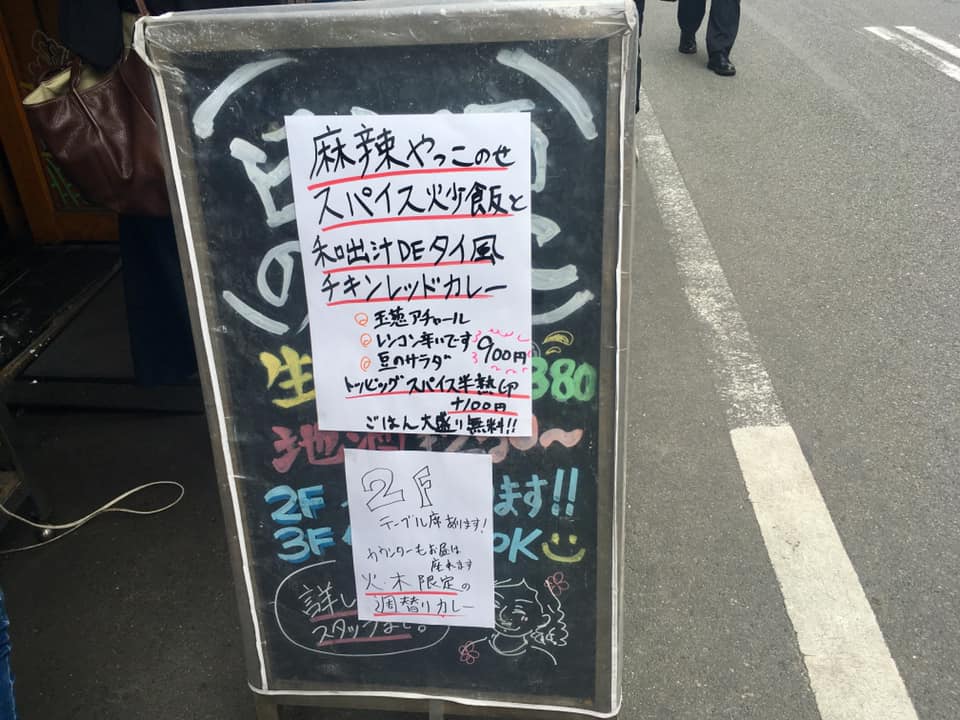 麻辣やっこのせ
スパイス炒飯と
和出汁DEタイ風
チキンレッドカレー
玉葱アチャール
レンコン辛いです
豆のサラダ
900円
トッピングスパイス半熟卵
+100円
ごはん大盛り無料!!
の
生 380
地酒 〜
2F ます!!
3F OK
2F
テーブル席あります!
カウンターもお昼は
座れます
火・木限定の
週替りカレー
詳し
スタッフまで。